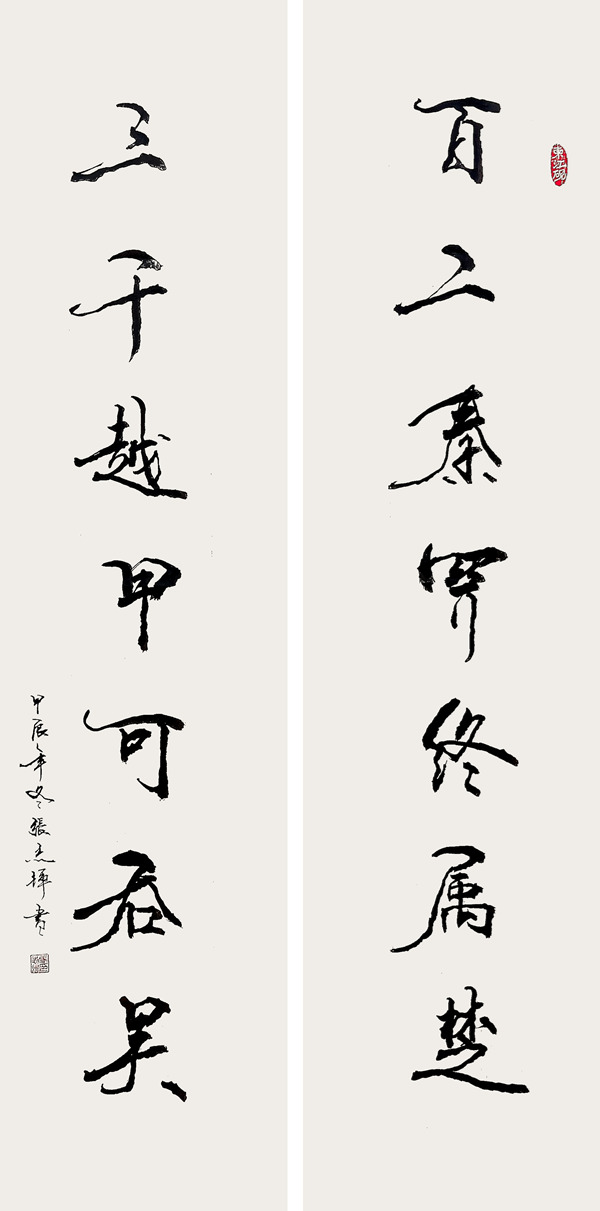 百二秦關終属楚
三千越甲可吞吴
甲辰年冬張杰輝書